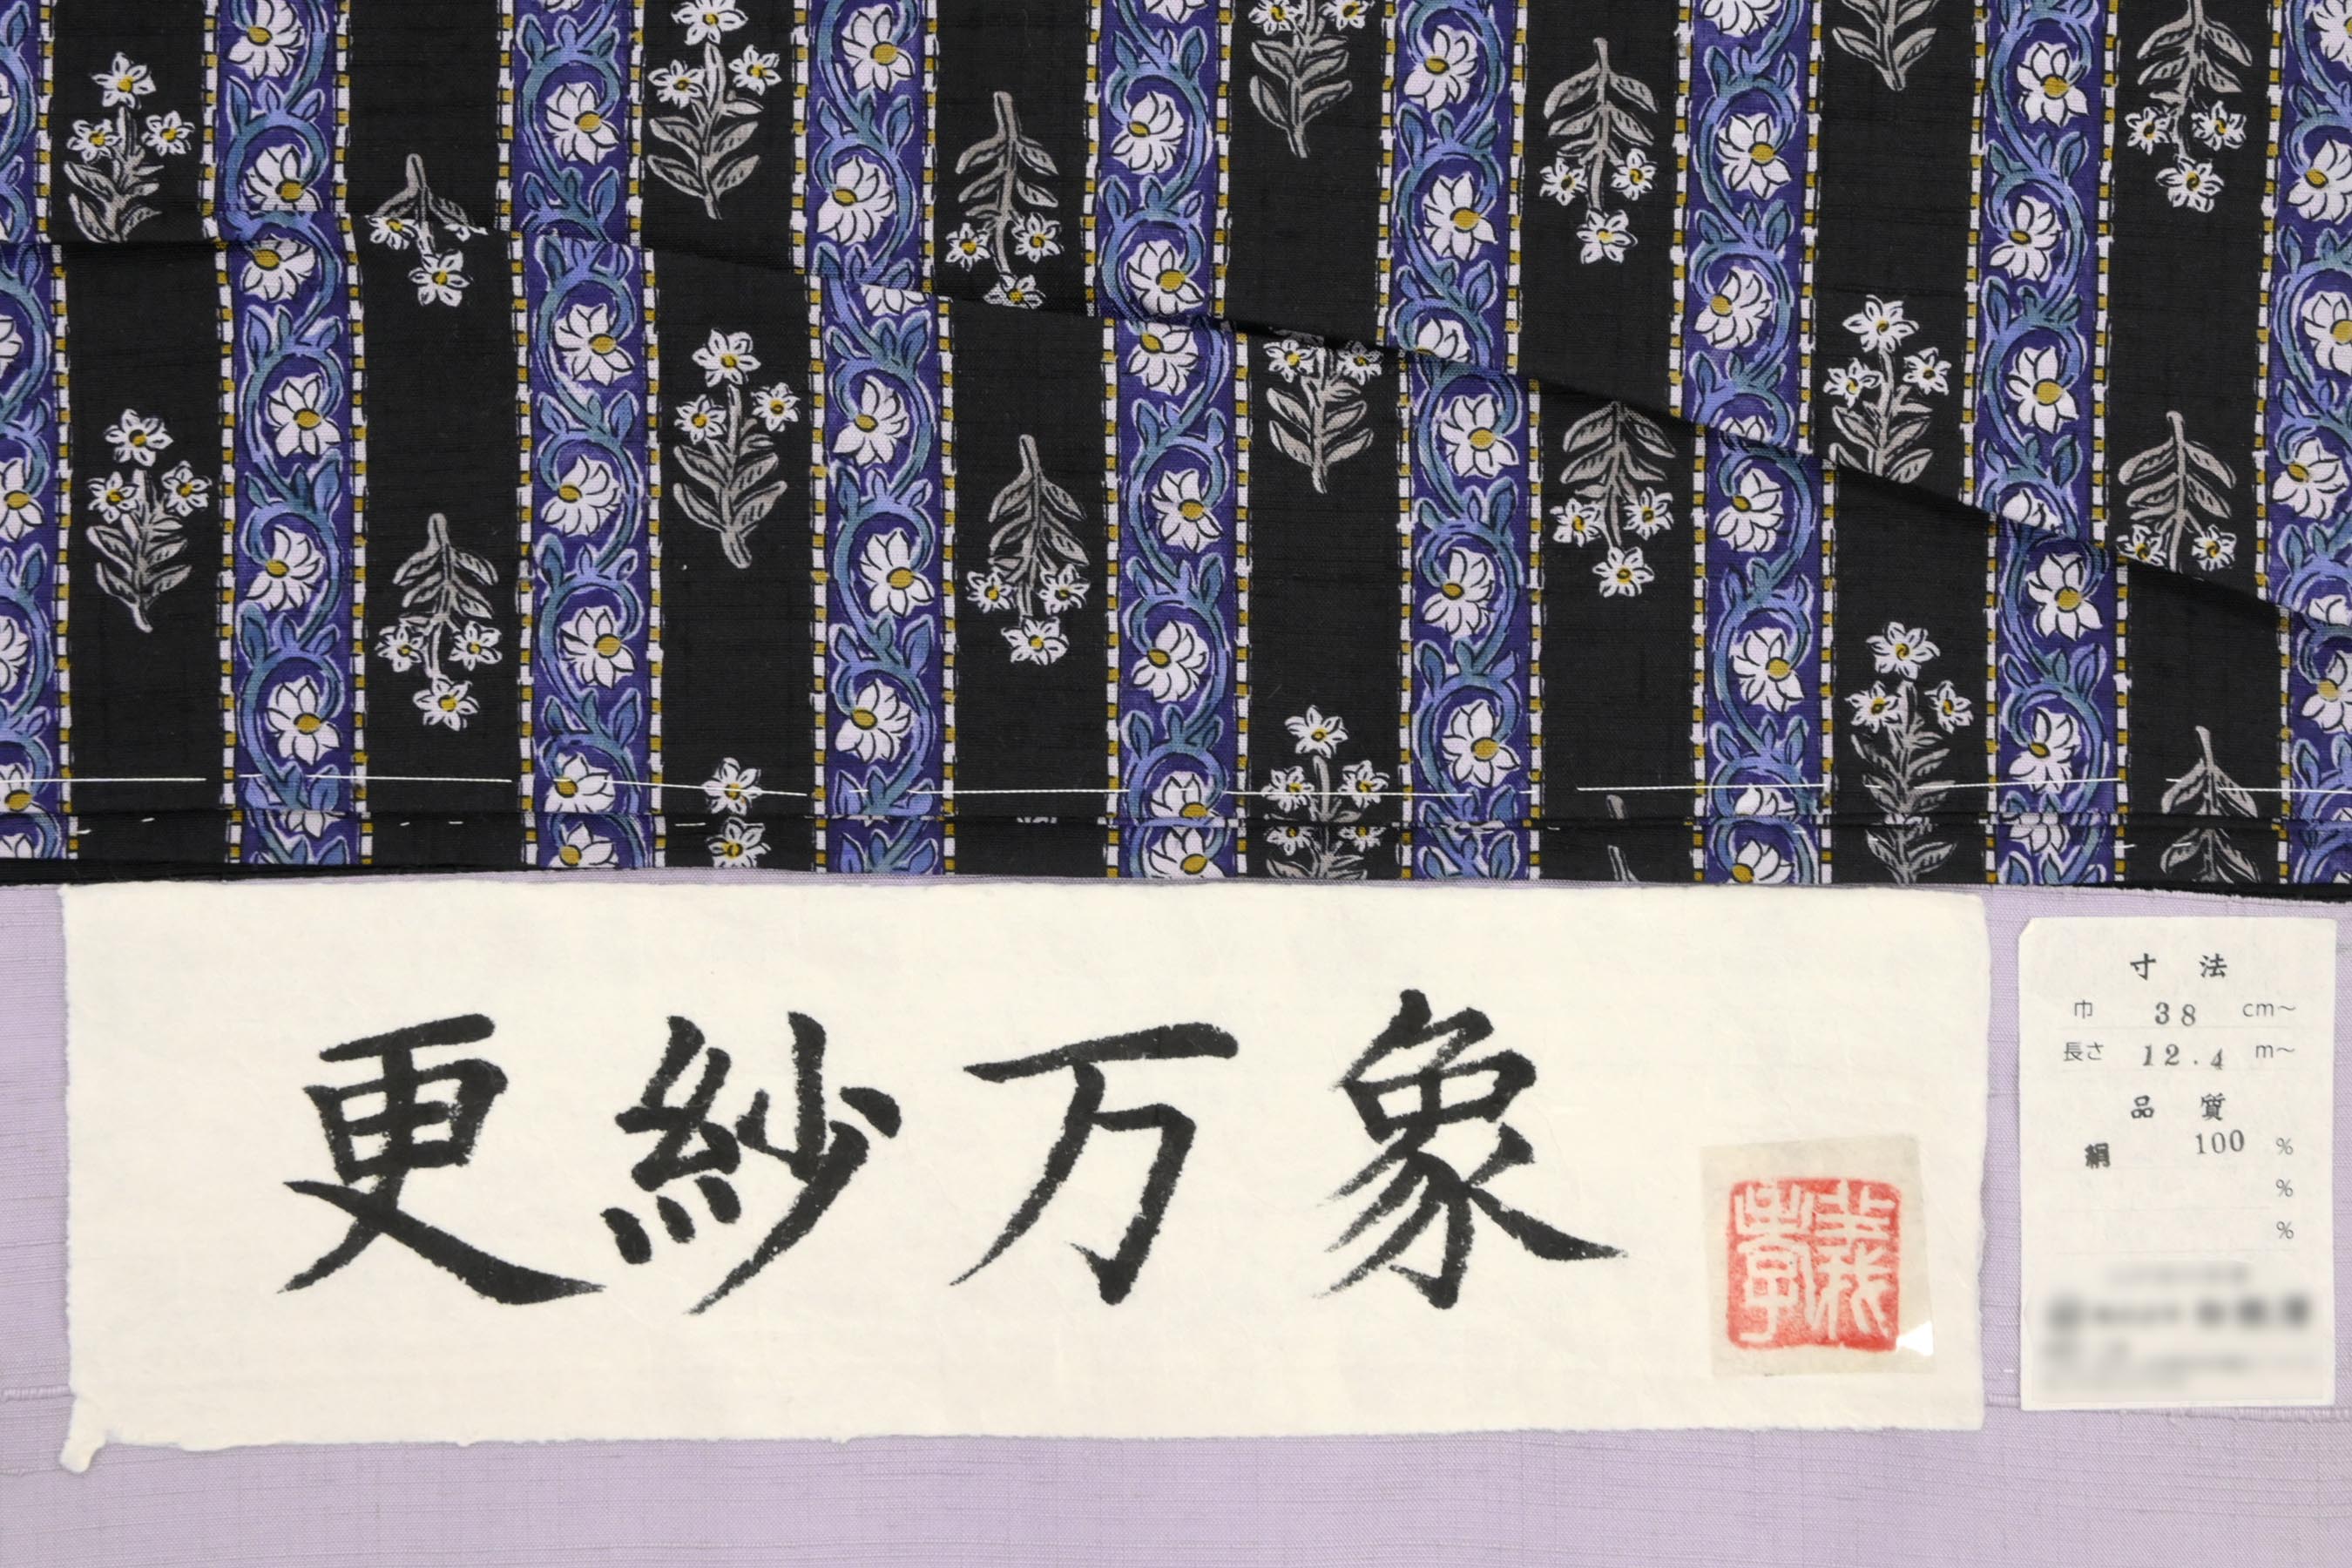 更紗万象
寸法
巾 38 cm~
長さ 12.4 m~
品質
絹 100 %
%
%